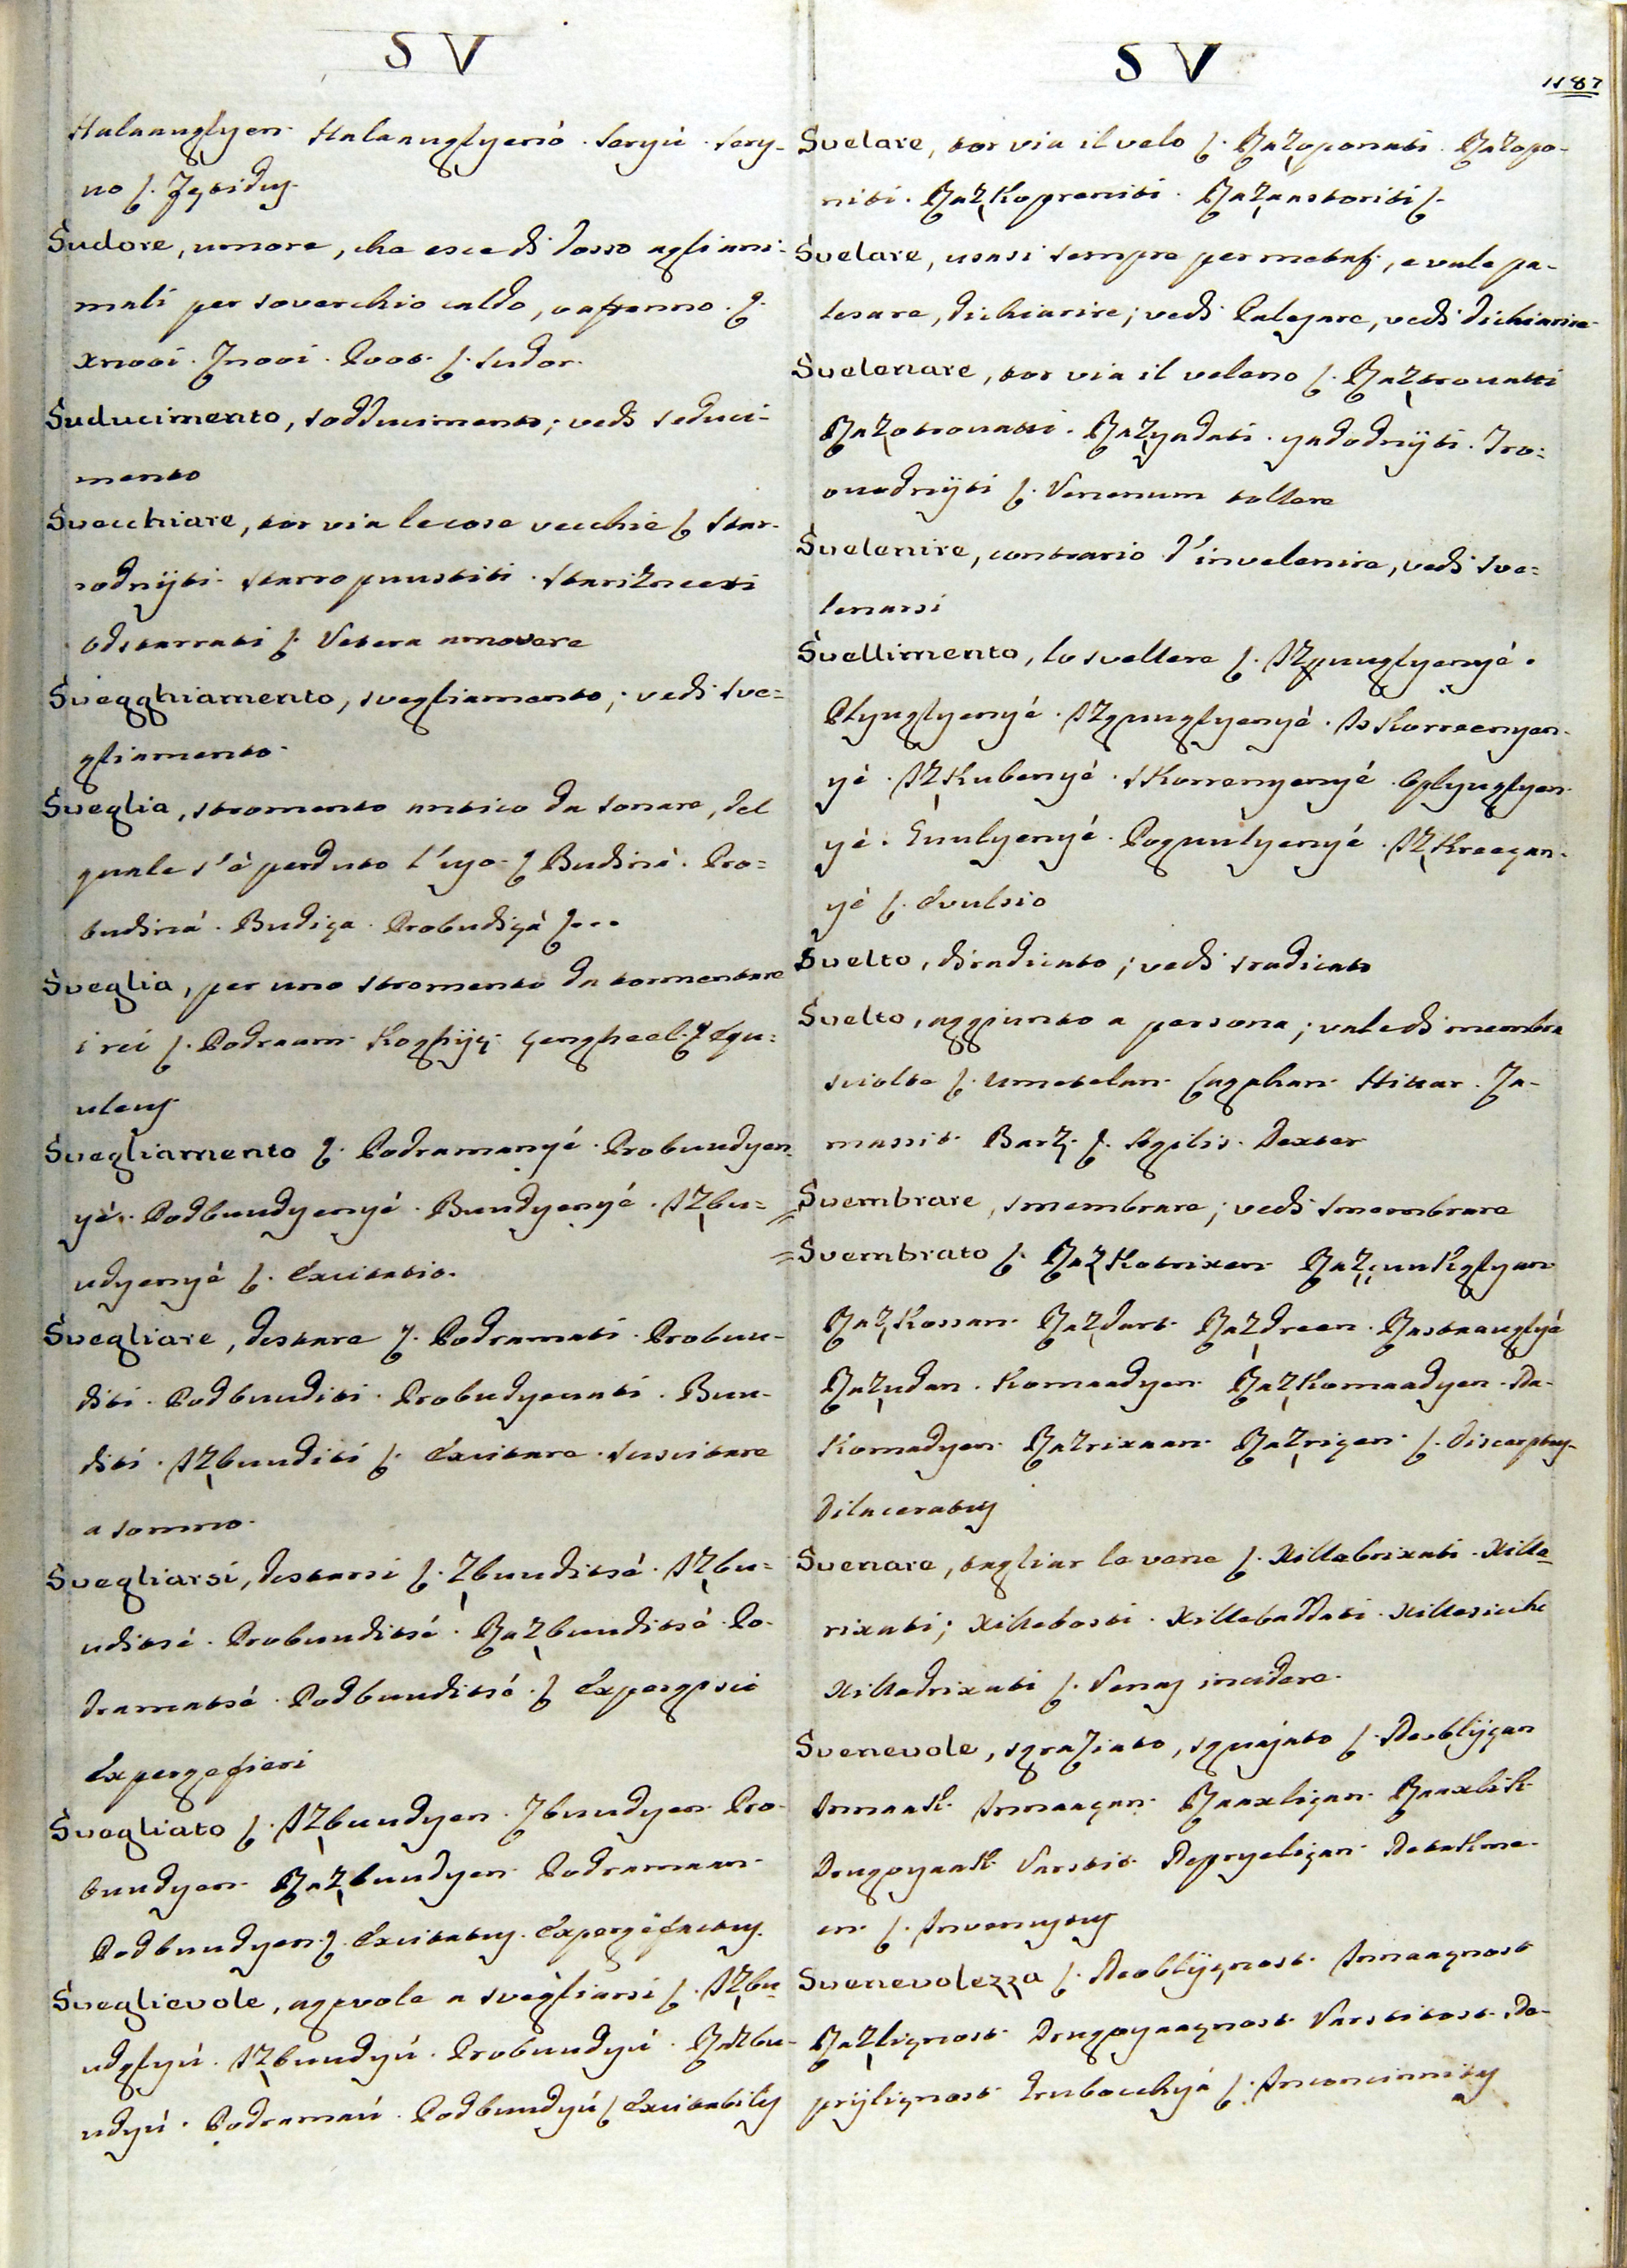 SV
Halaanglyen. Halaanglyenó. Seryú. Sery-
no ſ.
Sudore, umore, che esce di dosso agli ani-
mali per soverchio caldo, o affanno ſ.
Xnooi. Znooi. Poot ſ. Sudor.
Suducimento, sodducimento; vedi seduci-
mento
Svecchiare, tor via le cose vecchie ſ. Star-
rodnijti. Starropuustiti. Starižneesti
Odstarrati ſ. Vetera amovere
Svegghiamento, svegliamento; vedi sve=
gliamento.
Sveglia, stromento antico da sonare, del
quale s'è perduto l'uso ſ. Budiná. Pro=
budiná. Budiça. Probudiçà ſ...
Sveglia, per uno stromento da tormentare
i rei ſ. Podraam. ſ. Equ=
uleus
Svegliamento ſ. Podramanyé. Probuudyen-
yé. Podbuudyenyé. Buudyenyé. Izbu=
udyenyé ſ. Excitatio.
Svegliare, destare ſ. Podramati. Probuu-
diti. Podbuuditi. Probudyevati. Buu-
diti. Izbuuditi ſ. Excitare. Suscitare
a somno.
Svegliarsi, destarsi ſ. Zbuuditsé. Izbu=
uditsé. Probuuditsé. Razbuuditsé. Po-
dramatsé. Podbuuditsé. ſ. Expergisci
Expergefieri
Svegliato ſ. Izbuudyen. Zbuudyen. Pro-
buudyen. Razbuudyen. Podramaan.
Podbuudyen ſ. Excitatus. Expergefactus.
Sveglievole, agevole a svegliarsi ſ. Izbu-
udglyú. Izbuudyú. Probuudyú. Razbu-
udyú. Podramaú. Podbuudyú ſ. Excitabilis
SV
1187
Svelare, tor via il velo ſ. Razoponati. Razopo-
niti. Razkopreniti. Razaastoriti ſ.
Svelare, usasi sempre per metaf., e vale pa-
lesare, dichiarire; vedi Palesare, vedi dichiarire
Svelenare, tor via il veleno ſ. Raztrovatti
Razotrovatti. Razyadati. yadodnijti. Tro=
vuodnijti ſ. Venenum tollere
Svelenire, contrario d'invelenire, vedi sve=
lenarsi
Svellimento, lo svellere ſ. Izpuuglyenyé.
Plyuglyenyé. Izgpuuglyenyé. Iskorreenyen-
yé. Izkubenyé. Skorrenyenyé. Oplyuglyen-
yé. Guulyenyé. Poguulyenyé. Izkreeçan-
yé ſ. Evulsio
Svelto, diradicato; vedi sradicato
Svelto, aggiunto a persona; vale di membra
sciolte ſ. Umetelan. Lagahan. Hittar. Za-
massit. Barz. ſ. Agilis. Dexter
Svembrare, smembrare; vedi smembrare
Svembrato ſ. Razkotrixen. Razçuukglyan
Razkossan. Razdart. Razdreen. Rastaauglyé
Razudan. Komaadyen. Razkomaadyen. Da-
komadyen. Razrixaan. Razriçen. ſ. Discerptus.
Dilaceratus
Svenare, tagliar le vene ſ. Xillebrixati. Xille-
rixati; Xillebosti. Xillebaddati. Xillesicchi
Xilledrixati ſ. Venas incidere.
Svenevole, sgraziato, sguajato ſ. Neoblijçan
Inmaak. Inmaaçan. Raaxliçan. Raaxlik
Drugoyaak. Varstit. Nepryeliçan. Netakme-
en ſ. Invenustus
Svenevolezza ſ. Neoblijçnost. Inmaaçnost
Razliçnost. Drugoyaaçnost. Varstitost. Ne-
prijliçnost. Grubocchyá ſ. Inconcinnitas